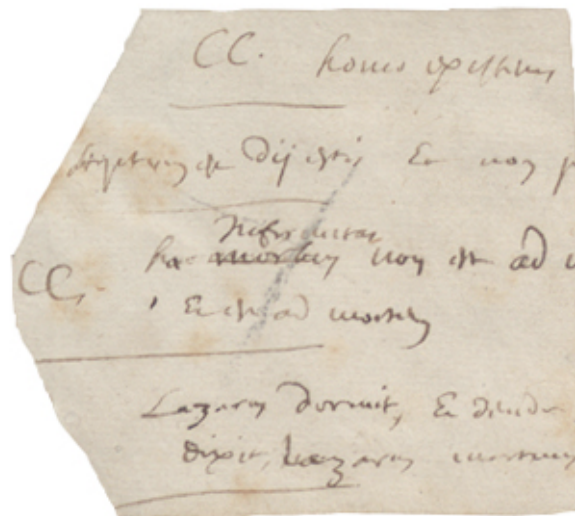 CC. homo existens
scriptum est Dij estis Et non p
infirmitas
CC. hæc non est ad v
Et est ad mortem
Lazarus dormit, Et deinde
dixit, Lazarus mortuus